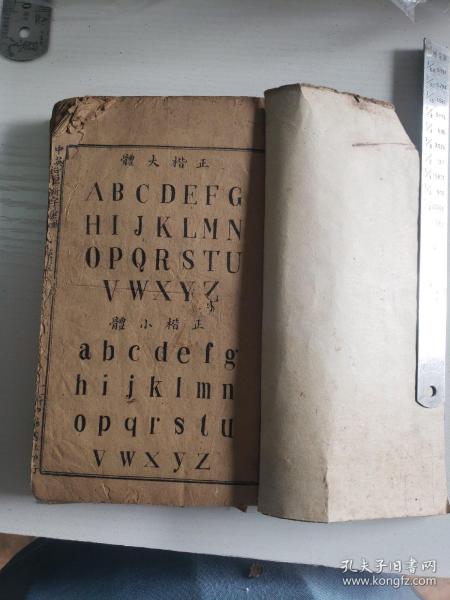 體大楷正
A B C D E F G
H I J K L M N
O P Q R S T U
V W X Y Z
體小楷正
a b c d e f g
h i j k l m n
o p q r s t u
v w x y z
孔夫子旧书网
www.kongfz.com